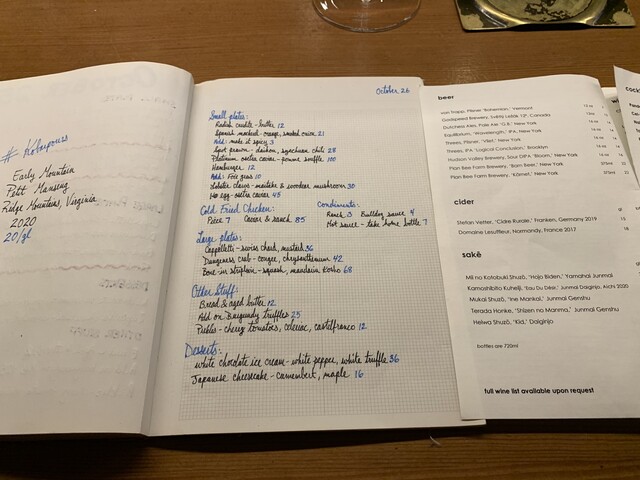 # Kobayouss
Early Mountain
Petit Manseng
Ridge Mountains, Virginia
2020
20/gl
October 26
Small plates:
Radish crudite - butter 12
Spanish mackerel - orange, smoked onion 21
Add: make it spicy 3
Spot prawn - daikon, synchuan chili 28
Platinum osetra caviar - pomme souffle 100
Hamburger 12
Add: Foie gras 10
Lobster claws - maitake & sweetbread mushroom 30
No egg - osetra caviar 45
Cold Fried Chicken:
Piece 7 Caviar & ranch 85
Condiments:
Ranch 3 Bulldog sauce 4
Hot sauce - take home bottle 7
Large plates:
Cappelletti - swiss chard, mustard 36
Dungeness crab - congee, chrysanthemum 42
Bone-in striploin - squash, mandarin kosho 68
Other Stuff:
Bread & aged butter 12
Add on Burgundy truffles 25
Pickles - cherry tomatoes, celeriac, castelfranco 12
Desserts:
white chocolate ice cream - white pepper, white truffle 36
Japanese cheesecake - camembert, maple 16
beer
von Trapp, Pilsner "Bohemian," Vermont
Godspeed Brewery, Světlý Ležák 12º, Canada
Dutchess Ales, Pale Ale "G.B." New York
Equilibrium, "Wavelength," IPA, New York
Threes, Pilsner, "Vliet," New York
Threes, IPA, "Logical Conclusion," Brooklyn
Hudson Valley Brewery, Sour DIPA "Bloom," New York
Plan Bee Farm Brewery, "Barn Beer," New York
Plan Bee Farm Brewery, "Kömet," New York
cider
Stefan Vetter, "Cidre Rurale," Franken, Germany 2019
Domaine Lesuffleur, Normandy, France 2017
saké
Mii no Kotobuki Shuzō, "Hojo Biden," Yamahai Junmai
Kamoshibito Kuheiji, "Eau Du Désir," Junmai Daiginjo, Aichi 2020
Mukai Shuzō, "Ine Mankai," Junmai Genshu
Terada Honke, "Shizen no Manma," Junmai Genshu
Heiwa Shuzō, "Kid," Daiginjo
bottles are 720ml
full wine list available upon request